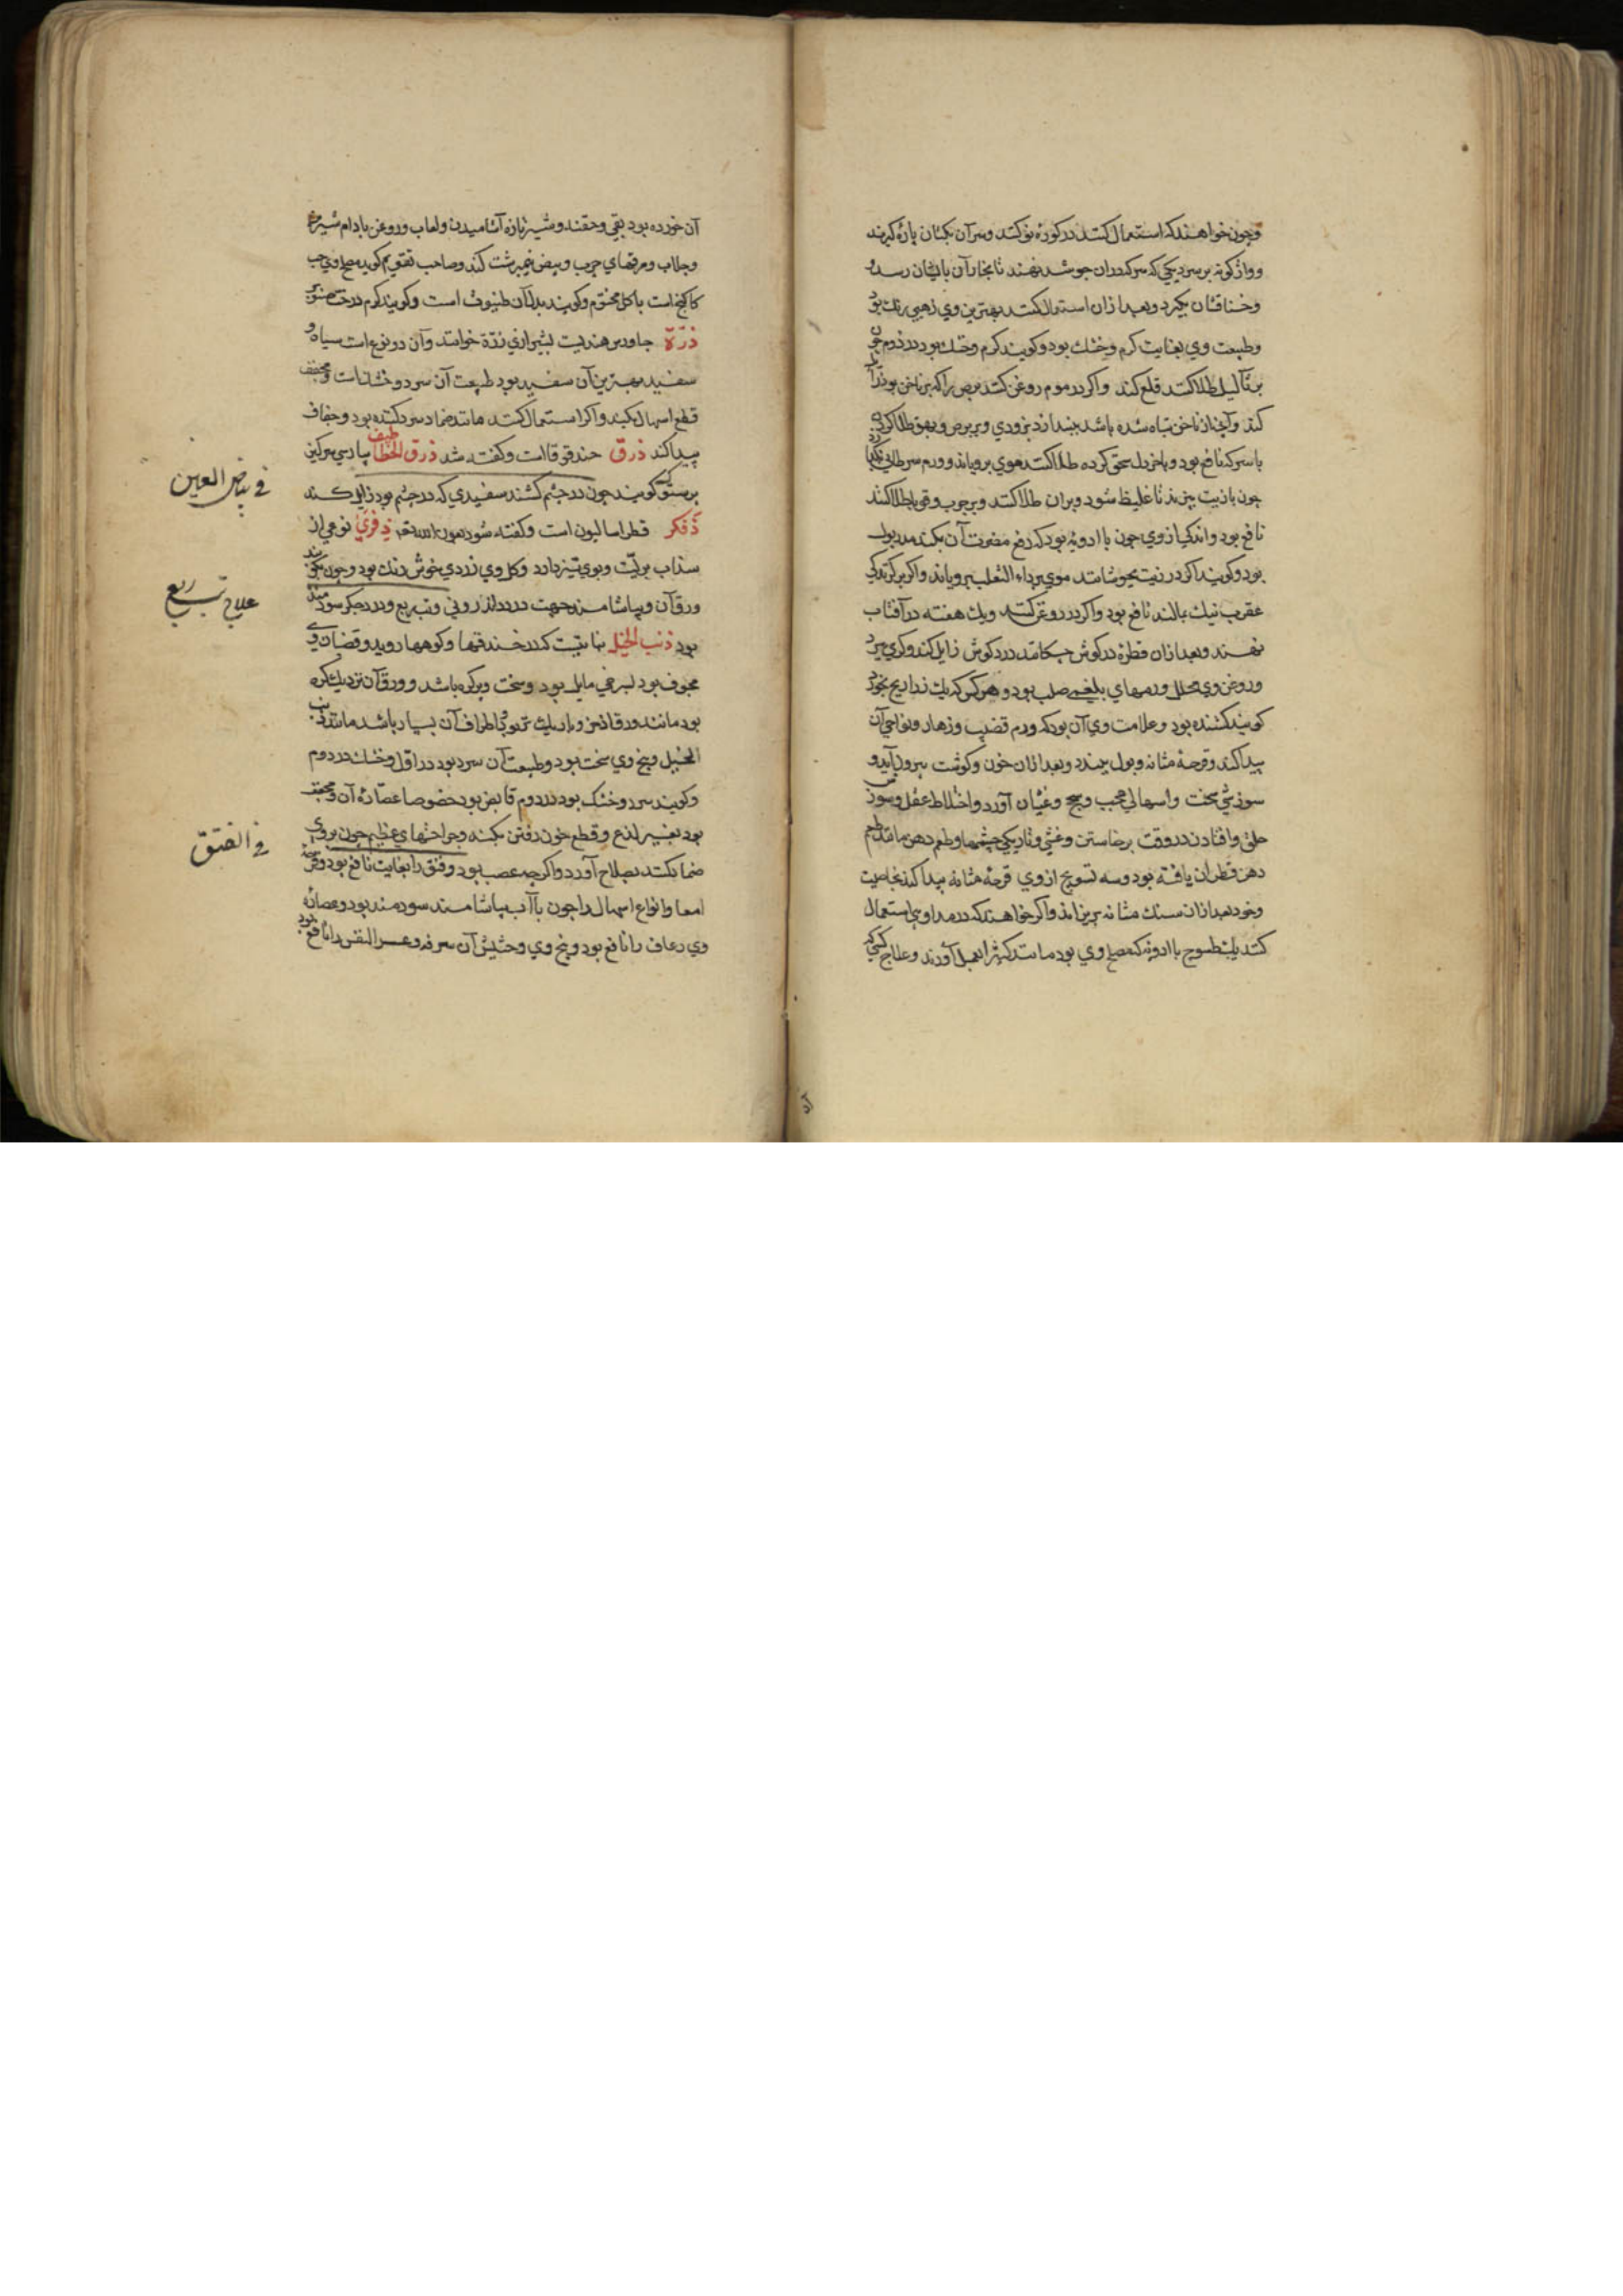 وچون خواهند که استعمال کنند در کوزهٔ نو کنند وسر آن بکتان پاره گیرند
وواژگونه بر سر دیکی که سرکه دران جوشد نهند تا بخار آن بایشان رسد
وخناقشان بگیرد وبعد ازان استعمال کنند بهترین وی ذهبی رنك بود
وطبیعت وی بغایت کرم وخشك بود وکویند کرم وخشك بود در دوم چون
بر ثآلیل طلا کنند قلع کند واکر در موم روغن کنند برص را که بر ناخن بود زایل
کند وآنچه از ناخن تباه شده باشد بیندازد بزودی وبر برص وبهق طلا کردن
با سرکه نافع بود وباخردل سحق کرده طلا کنند موی برویاند وورم سرطانی
چون بازیت بپزند تا غلیظ شود وبران طلا کنند وبر جرب وقوبا طلا کنند
نافع بود واندکی ازوی چون با ادویهٔ بود که دفع مضرت آن بکند مدر بول
بود وکویند اکر در زیت بجوشانند موی بر داء الثعلب برویاند واکر بر کزندکی
عقرب نیك بمالند نافع بود واکر در روغن کنند ویك هفته در آفتاب
نهند وبعد ازان قطرهٔ در کوش چکانند درد کوش زایل کند وکری ببرد
وروغن وی محلل ورمهای بلغمی صلب بود وهر کس که یك ذراریح بخورد
کویند کشنده بود وعلامت وی آن بود که ورم قضیب وزهار ونواحی آن
پیدا کند وقرحهٔ مثانه وبول ببندد وبعد ازان خون وکوشت بیرون آید و
سوزشی سخت واسهالی عجب وسحج وغثیان آورد واختلاط عقل وسوزش
حلق وافتادن در وقت برخاستن وغشی وتاریکی چشمها وطعم دهن مانند طعم
دهن قطران یافته بود وسه تسویج ازوی قرحهٔ مثانه پیدا کند بخاصیت
وخود بعد ازان سنك مثانه بریزاند واکر خواهند که در مداوی استعمال
کنند یك طسوج با ادویه که مصلح وی بود مانند کثیرا بعمل آورند وعلاج کسی که
آن خورده بود بقی وحقنه وشیر تازه آشامیدن ولعاب وروغن بادام شیرین
وجلاب ومرقهای چرب وبیض نیمبرشت کند وصاحب تقویم کوید مصلح وی حب
کاکنج است با کل مختوم وکویند بدل آن طنبوث است وکویند کرم درخت صنوبر
ذرّة جاورس هندیست بشیرازی زرّة خوانند وآن دو نوع است سیاه و
سفید بهترین آن سفید بود طبیعت آن سرد وخشك است ومجفف
قطع اسهال بکند واکر استعمال کنند مانند ضماد سرد کننده بود وجفاف
پیدا کند ذرق حندقوقا است وکفته شد ذرق الخطاطیف پپارسی سرکین
پرستوک کویند چون در چشم کشند سفیدی که در چشم بود زایل کند
ذفکر قطراسالیون است وکفته شود ذفری نوعی از
سذاب بریّست وبوی تیز دارد وکل وی زردی خوش رنك بود وچون بکوبند
ورق آن وبیاشامند جهت درد اندرونی وتب ربع ودرد جکر سودمند
بود ذنب الخیل نباتیست که در خندقها وکوهها روید وقضبان وی
مجوف بود لسرخی مایل بود وسخت وپرکره باشد وورق آن نزدیك کره
بود مانند ورق اذخر وباریك تر بود واطراف آن بسیار باشد مانند ذنب
الخیل وبیخ وی سخت بود وطبیعت آن سرد بود در اوّل وخشك در دوم
وکویند سرد وخشک بود در دوم قابض بود خصوصا عصّارهٔ آن ومجفف
بود بغیر لذع وقطع خون رفتن بکند وجراحتهای عظیم چون بروی
ضماد کنند بصلاح آورد واکرچه عصب بود وفتق را بغایت نافع بود وقرحهٔ
امعا وانواع اسهال را چون با آب بیاشامند سودمند بود وعصارهٔ
وی رعاف را نافع بود وبیخ وی وحشیش آن سرفه وعسر النفس را نافع بود
فی بیاض العین
علاج تب ربع
فی الفتق